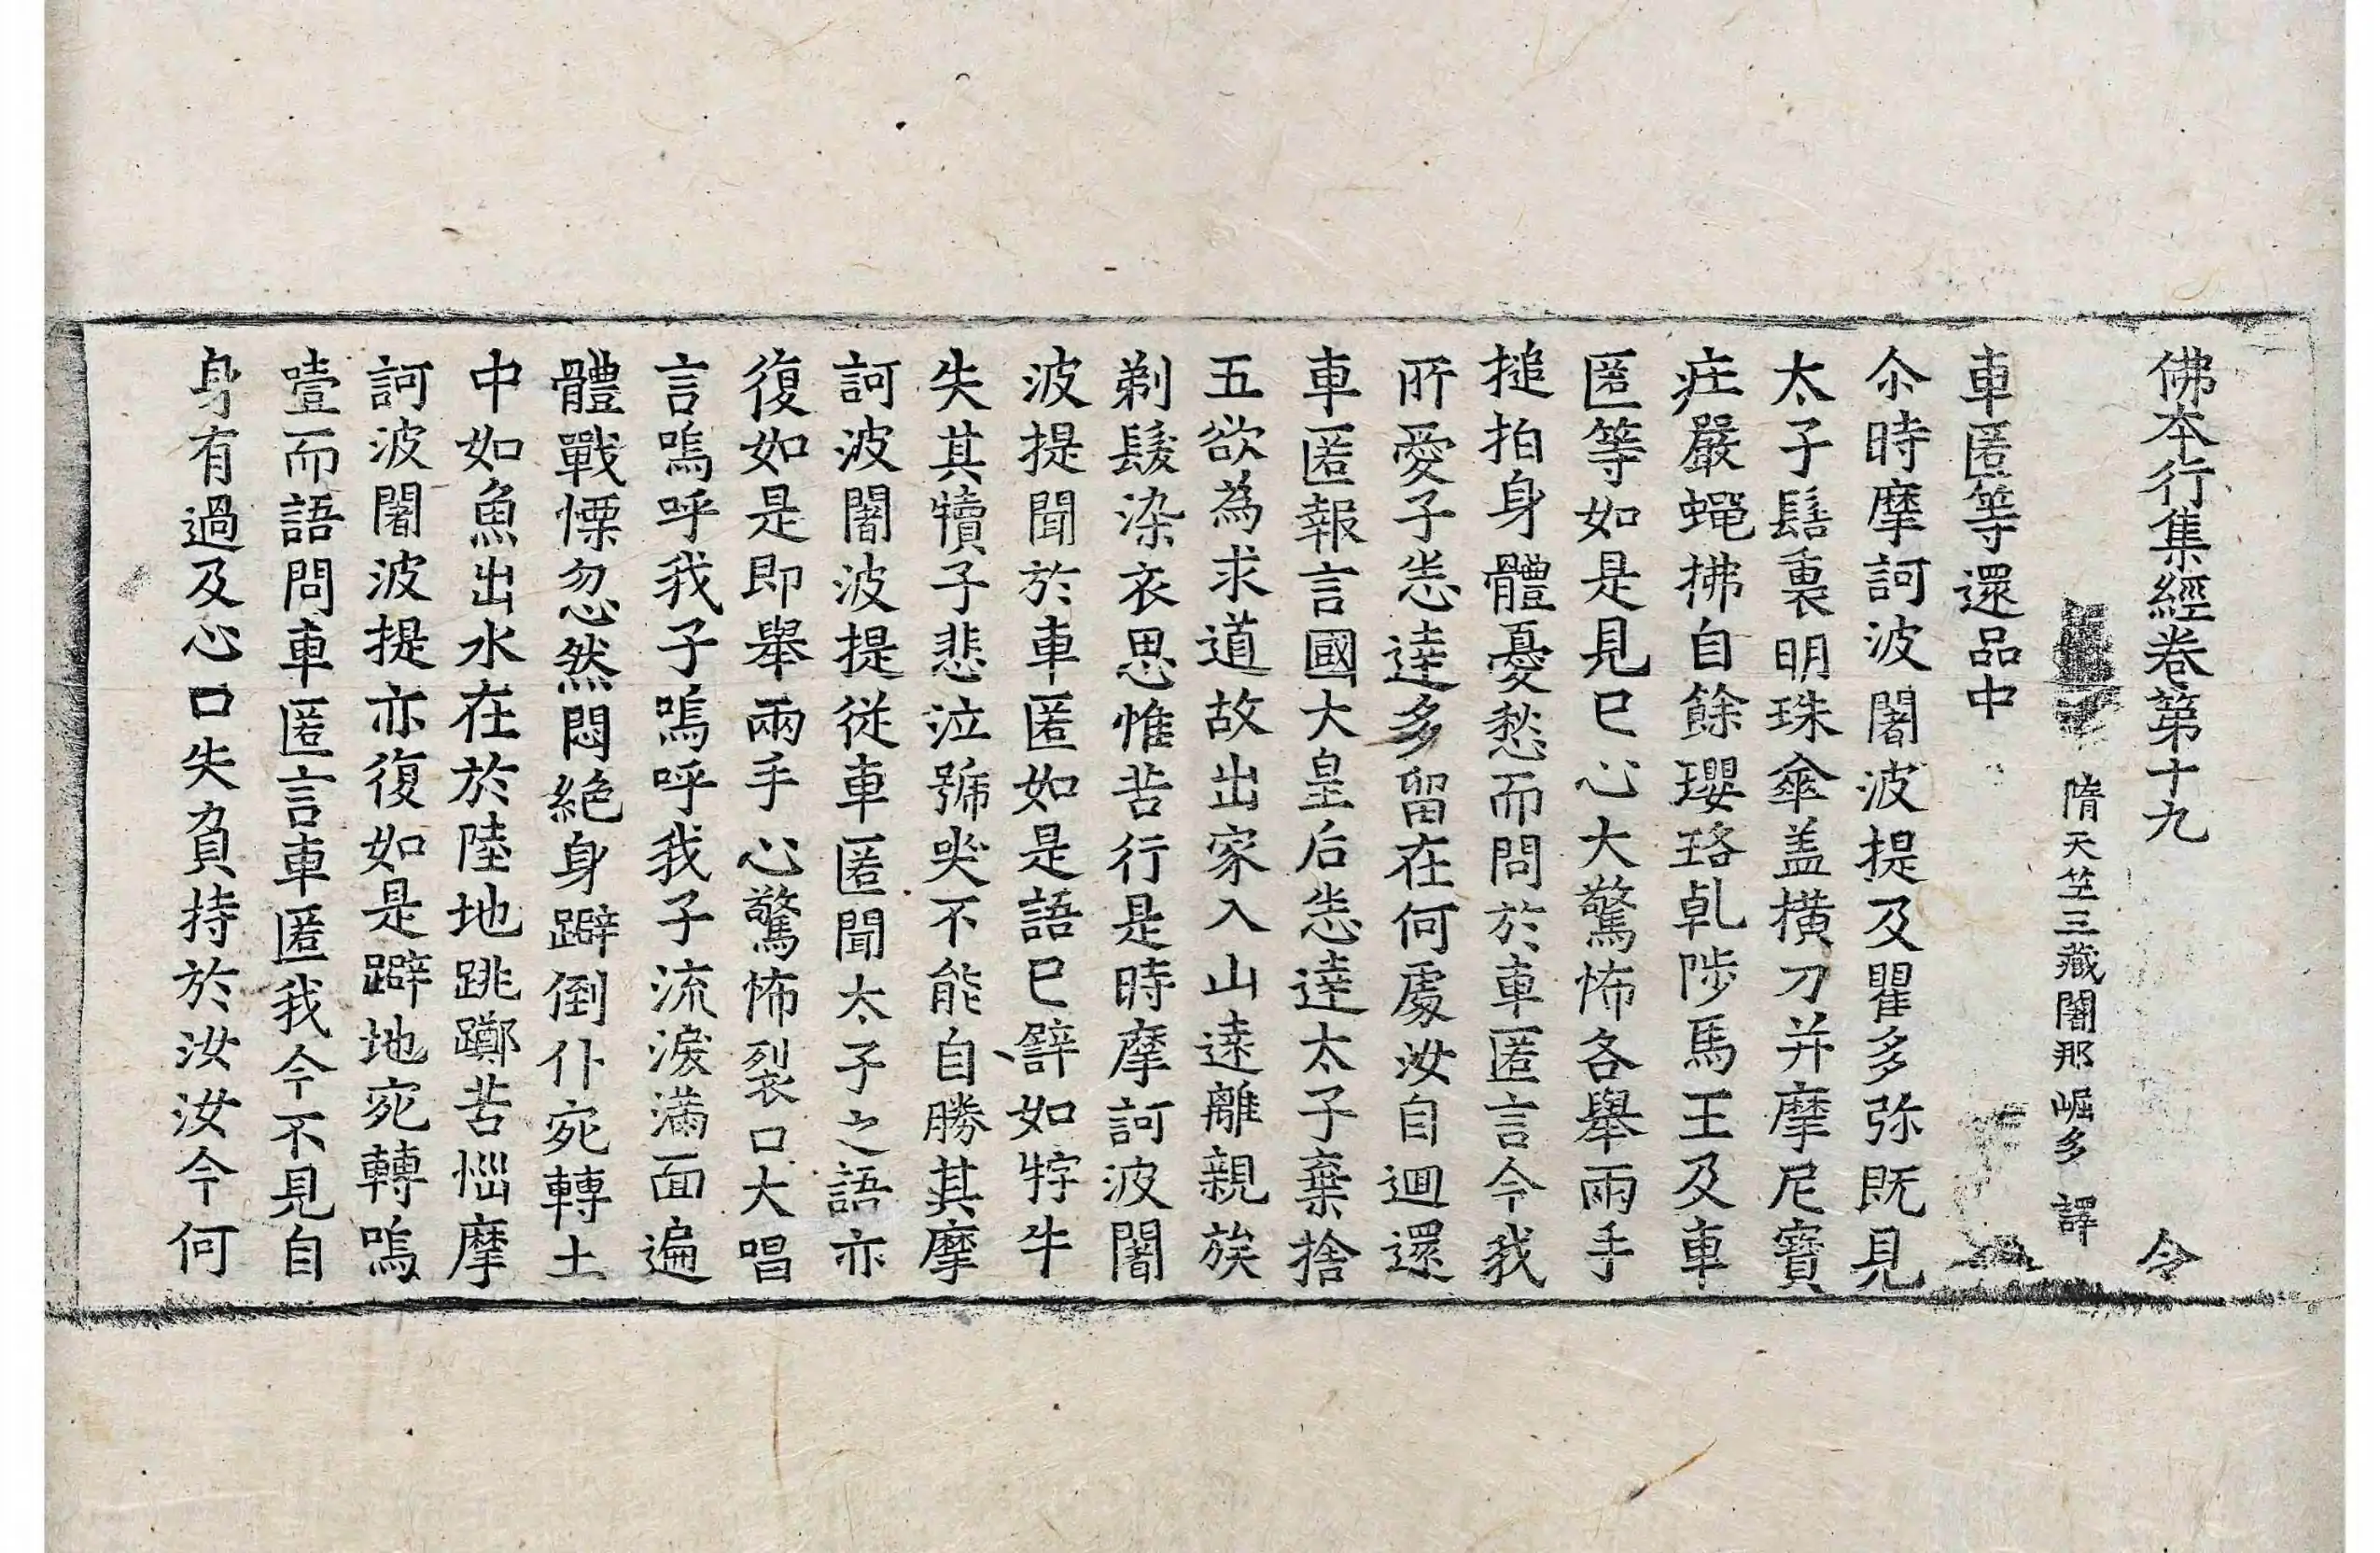 佛本行集經卷第十九 令
隋天竺三藏闍那崛多 譯
車匿等還品中
尒時摩訶波闍波提及瞿多弥既見
太子髻裏明珠傘盖横刀并摩尼寶
庄嚴蠅拂自餘瓔珞乹陟馬王及車
匿等如是見已心大驚怖各舉兩手
搥拍身體憂愁而問於車匿言今我
所愛子悉達多留在何處汝自迴還
車匿報言國大皇后悉達太子棄捨
五欲為求道故出家入山遠離親族
剃髮染衣思惟苦行是時摩訶波闍
波提聞於車匿如是語已譬如牸牛
失其犢子悲泣號哭不能自勝其摩
訶波闍波提從車匿聞太子之語亦
復如是即舉兩手心驚怖裂口大唱
言嗚呼我子嗚呼我子流淚滿面遍
體戰慄忽然悶絶身躃倒仆宛轉土
中如魚出水在於陸地跳躑苦惱摩
訶波闍波提亦復如是躃地宛轉嗚
噎而語問車匿言車匿我今不見自
身有過及心口失負持於汝汝今何